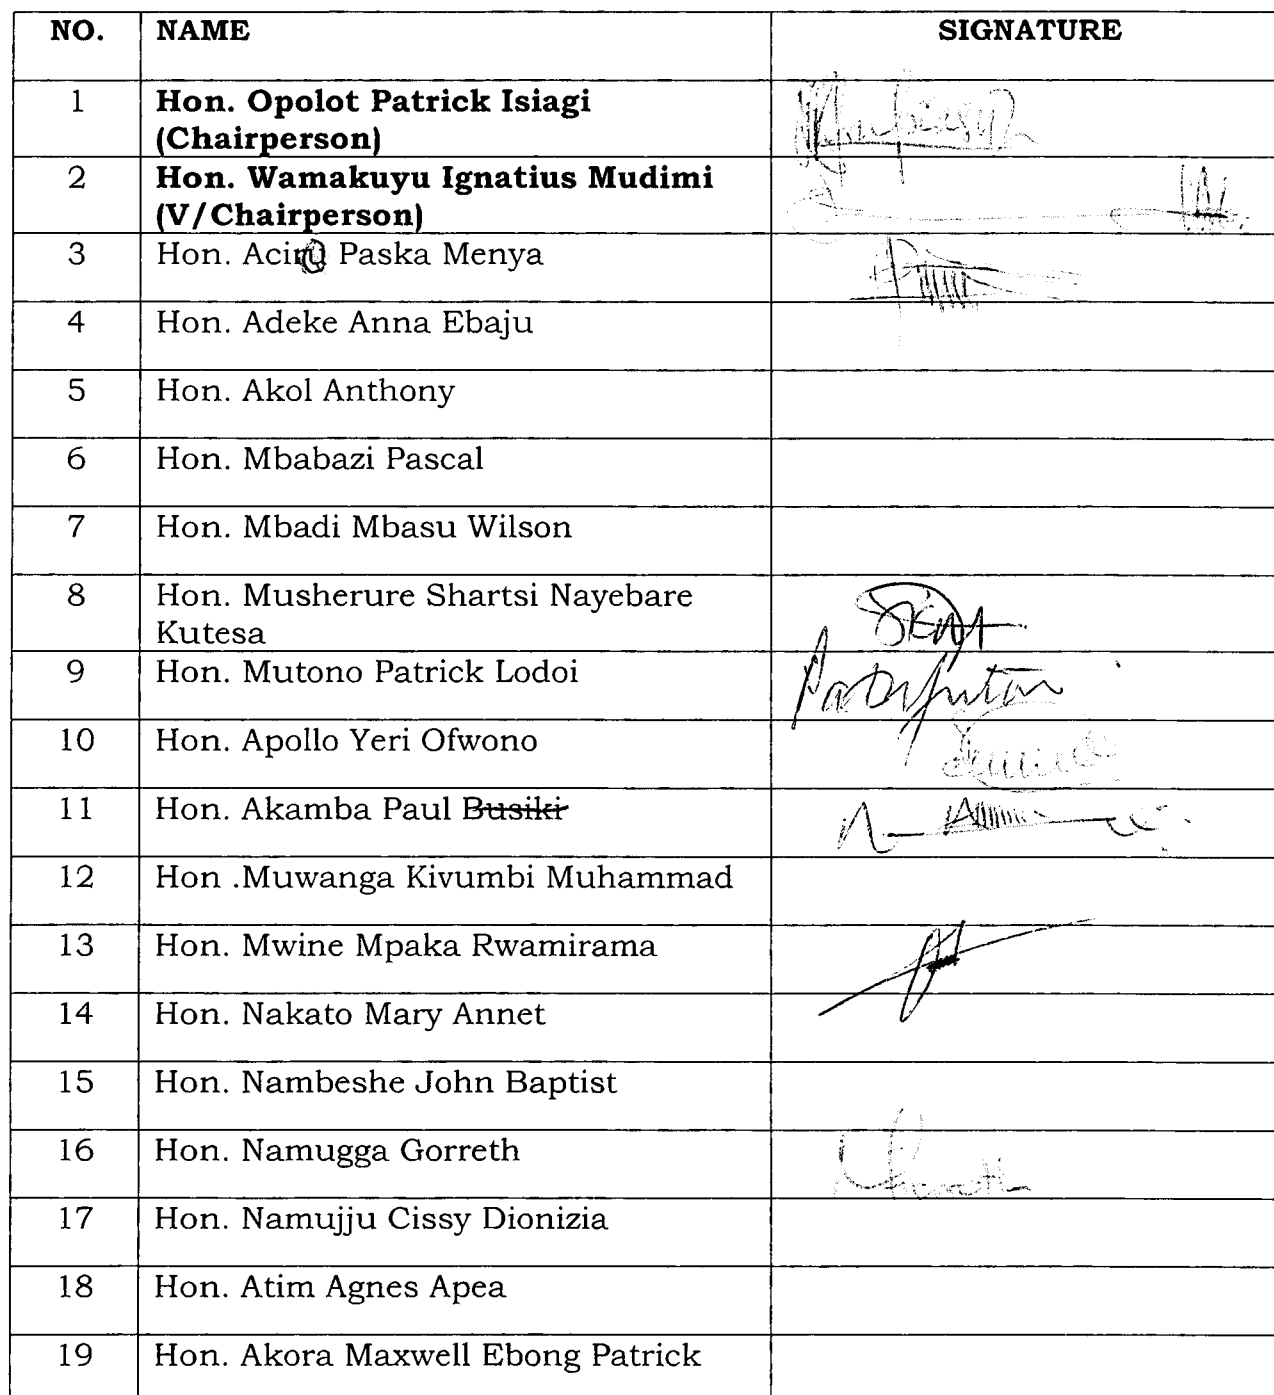 NO. NAME SIGNATURE
1 Hon. Opolot Patrick Isiagi
(Chairperson)
2 Hon. Wamakuyu Ignatius Mudimi
(V/Chairperson)
3 Hon. Paska Menya
4 Hon. Adeke Anna Ebaju
5 Hon. Akol Anthony
6 Hon. Mbabazi Pascal
7 Hon. Mbadi Mbasu Wilson
8 Hon. Musherure Shartsi Nayebare
Kutesa
9 Hon. Mutono Patrick Lodoi
10 Hon. Apollo Yeri Ofwono
11 Hon. Akamba Paul Busiki
12 Hon .Muwanga Kivumbi Muhammad
13 Hon. Mwine Mpaka Rwamirama
14 Hon. Nakato Mary Annet
15 Hon. Nambeshe John Baptist
16 Hon. Namugga Gorreth
17 Hon. Namujju Cissy Dionizia
18 Hon. Atim Agnes Apea
19 Hon. Akora Maxwell Ebong Patrick